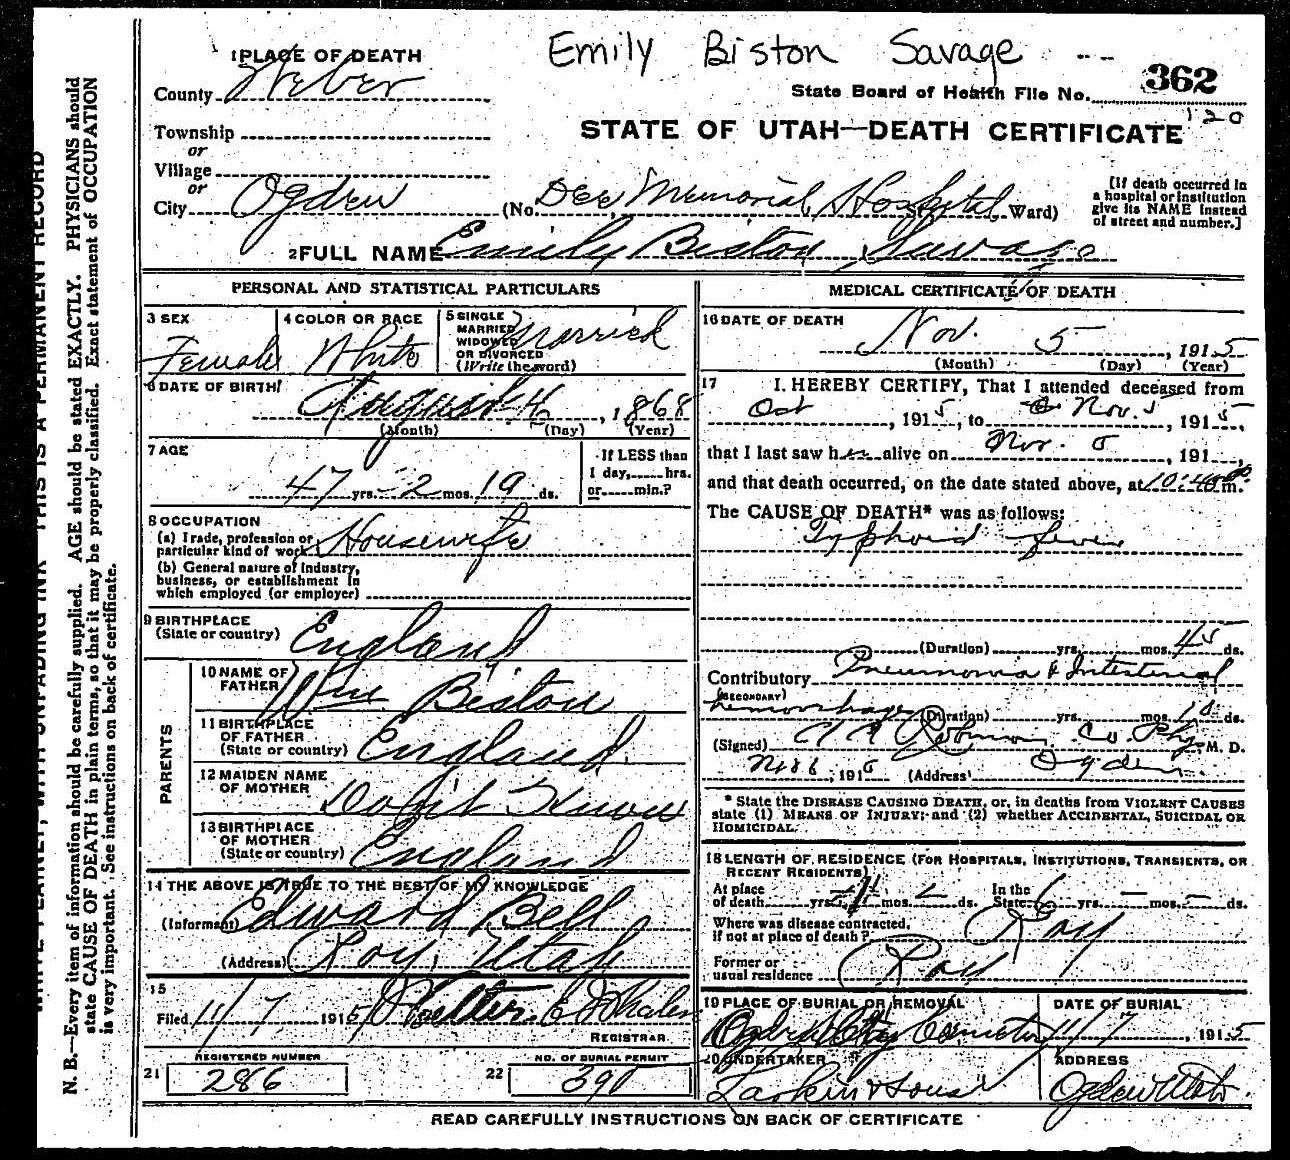 Emily Biston Savage
1 PLACE OF DEATH
County Weber
State Board of Health File No. 362
120
Township
or
Village
or
City Ogden (No. Dee Memorial Hospital St. Ward)
STATE OF UTAH—DEATH CERTIFICATE
[If death occurred in
a hospital or institution
give its NAME instead
of street and number.]
2 FULL NAME Emily Biston Savage
PERSONAL AND STATISTICAL PARTICULARS
3 SEX
Female
4 COLOR OR RACE
White
5 SINGLE
MARRIED
WIDOWED
OR DIVORCED
(Write the word)
Married
6 DATE OF BIRTH
August 4, 1868
(Month) (Day) (Year)
7 AGE
47 yrs. 2 mos. 19 ds.
If LESS than
1 day, hrs.
or min.?
8 OCCUPATION
(a) Trade, profession or
particular kind of work Housewife
(b) General nature of industry,
business, or establishment in
which employed (or employer)
9 BIRTHPLACE
(State or country) England
PARENTS
10 NAME OF
FATHER Wm Biston
11 BIRTHPLACE
OF FATHER
(State or country) England
12 MAIDEN NAME
OF MOTHER Don't Know
13 BIRTHPLACE
OF MOTHER
(State or country) England
14 THE ABOVE IS TRUE TO THE BEST OF MY KNOWLEDGE
(Informant) Edward Bell
(Address) Roy, Utah
15
Filed 11/7 1915 Walter E Whalen
REGISTRAR
21 REGISTERED NUMBER
286
22 NO. OF BURIAL PERMIT
390
MEDICAL CERTIFICATE OF DEATH
16 DATE OF DEATH
Nov. 5, 1915
(Month) (Day) (Year)
17 I HEREBY CERTIFY, That I attended deceased from
Oct, 1915, to Nov. 5, 1915,
that I last saw her alive on Nov. 5, 191,
and that death occurred, on the date stated above, at 10:40 m.
The CAUSE OF DEATH* was as follows:
Typhoid fever
(Duration) yrs. mos. 45 ds.
Contributory Pneumonia & Intestinal
(SECONDARY)
hemorrhage (Duration) yrs. mos. 10 ds.
(Signed) Co. Phy. M. D.
191 (Address) Ogden
* State the DISEASE CAUSING DEATH, or, in deaths from VIOLENT CAUSES
state (1) MEANS OF INJURY; and (2) whether ACCIDENTAL, SUICIDAL OR
HOMICIDAL.
18 LENGTH OF RESIDENCE (FOR HOSPITALS, INSTITUTIONS, TRANSIENTS, OR
RECENT RESIDENTS)
At place
of death yrs. mos. ds. In the
State 6 yrs. mos. ds.
Where was disease contracted,
if not at place of death? Roy
Former or
usual residence Roy
19 PLACE OF BURIAL OR REMOVAL
Ogden City Cemetery
DATE OF BURIAL
11/7, 1915
20 UNDERTAKER
Larkin & Sons
ADDRESS
Ogden Utah
READ CAREFULLY INSTRUCTIONS ON BACK OF CERTIFICATE
WRITE PLAINLY, WITH UNFADING INK THIS IS A PERMANENT RECORD
N. B.—Every item of information should be carefully supplied. AGE should be stated EXACTLY. PHYSICIANS should
state CAUSE OF DEATH in plain terms, so that it may be properly classified. Exact statement of OCCUPATION
is very important. See instructions on back of certificate.